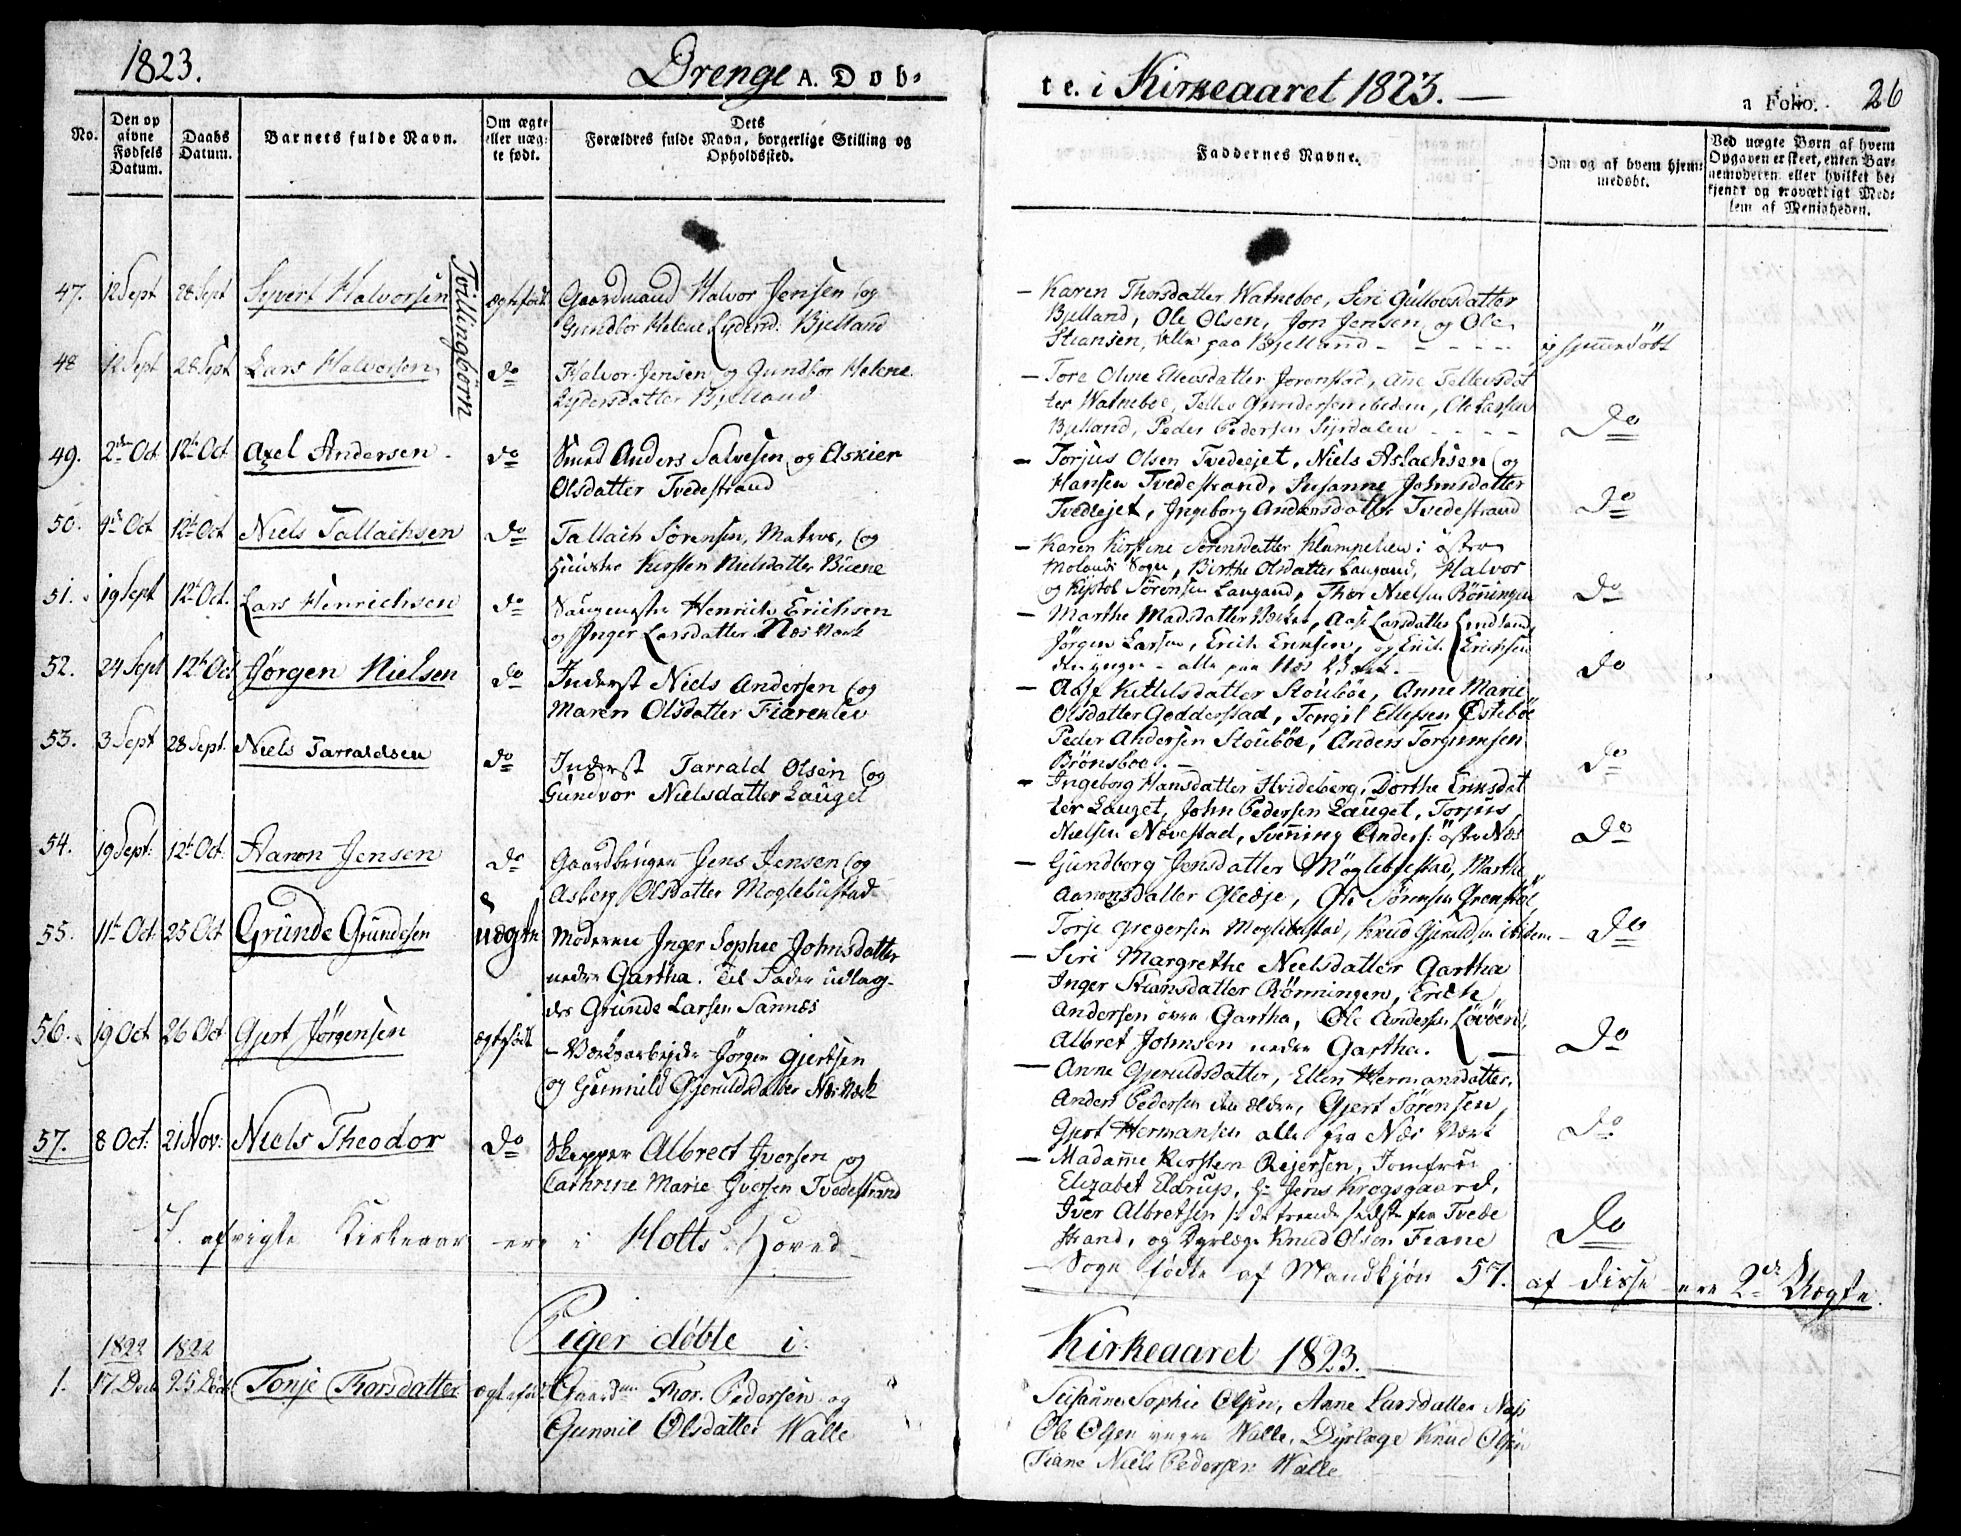 1823.
Drenge A. Døb-
te. i Kirkeaaret 1823.—
a Folio. 26
No.
Den op
givne
Fødsels
Datum.
Daabs
Datum.
Barnets fulde Navn.
Om ægte
eller uæg-
te født.
Dets
Forældres fulde Navn, borgerlige Stilling og
Opholdssted.
Faddernes Navne.
Om og af hvem hjem-
medøbt.
Ved uægte Børn af hvem
Opgaven er skeet, enten Bar-
nemoderen eller hvilket be-
kjendt og troværdigt Med-
lem af Menigheden.
47. 12 Sept 28 Sept Syvert Halvorsen ægtefødt Gaardmand Halvor Jensen og
Gundbor Helene Lydersd: Bjelland
Tvillingbörn
— Karen Thorsdatter Watneboe, Siri Gullovsdatter
Bjelland, Ole Olsen, Jon Jensen, og Ole
Stiansen, alle paa Bjelland - - - - - ej hjemmedöbt
48 12 Sept 28 Sept Lars Halvorsen do Halvor Jensen og Gundbor Helene
Lydersdatter Bjelland
— Tore Oline Ellevsdatter Jorenstad, Ane Tellevsdat
ter Watneboe, Tellev Gundersen ibidem, Ole Larsen
Bjelland, Peder Pedersen Sirdalen - - - - Do
49. 2den Oct 12te Oct Axel Andersen. do Smed Anders Salvesen og Askier
Olsdatter Tvedestrand
— Torjus Olsen Tvedejet, Niels Aslachsen og
Hansen Tvedestrand, Susanne Johnsdatter
Tvedejet, Ingeborg Andersdatter Tvedestrand Do
50. 4de Oct 12te Oct Niels Tallachsen do Tallach Sörensen, Matros, og
Hustrue Kirsten Nielsdatter Buene
— Karen Kirstine Sörensdatter Klampelien i öster
Molands Sogn, Birthe Olsdatter Langand, Halvor
og Kistol Sörensen Langand, Thor Nielsen Rönningen Do
51. 19 Sept 12te Oct. Lars Henrichsen do Saugmester Henrich Erichsen
og Inger Larsdatter Næs Værk
— Marthe Madsdatter Værket, Aase Larsdatter Lindland,
Jörgen Larsen, Erich Erichsen, og Erich Erichsen
den yngre - alle paa Næs Værk. - Do
52. 24 Sept 12te Oct Jörgen Nielsen do Inderst Niels Andersen og
Maren Olsdatter Fiærenlev
— Aase Kittelsdatter Stouböe, Anne Marie
Olsdatter Godderstad, Tengil Ellefsen Østeböe
Peder Andersen Stouböe, Anders Torgrimsen
Brönsboe. — Do
53. 3 Sept 28 Sept. Niels Tarraldsen do Inderst Tarrald Olsen og
Gundvor Nielsdatter Lauget
— Ingeborg Hansdatter Hvideberg, Dorthe Eriksdat
ter Lauget, John Pedersen Lauget, Torjus
Nielsen Nævestad, Svenning Anders: östre Næs Do
54. 19 Sept: 12te Oct: Aanon Jensen do Gaardbruger Jens Jensen og
Asberg Olsdatter Moglebustad
— Gundborg Jensdatter Möglebustad, Marthe
Aanonsdatter Gledje, Ole Sörensen Grenstöl
Torje Gregersen Moglebustad, Knud Gjeruldsen ibidem — Do
55. 11te Oct 25 Oct Grunde Grundesen uægte Moderen Inger Sophie Johnsdatter
nedre Gartha. Til Fader udlag-
des Grunde Larsen Sannes
— Siri Margrethe Nielsdatter Gartha
Inger Stiansdatter Rönningen, Erich
Andersen övre Gartha, Ole Andersen Lövöen,
Albret Johnsen nedre Gartha. — Do
56. 19 Oct 26 Oct Gjert Jörgensen ægtefödt — Værksarbejder Jörgen Gjertsen
og Gunnild Gjeruldsdatter Næs Værk
— Anne Gjeruldsdatter, Ellen Hermansdatter,
Anders Pedersen den ældre, Gjert Sörensen,
Gjert Hermansen alle fra Næs Værk Do
57. 8 Oct: 21 Nov: Niels Theodor Do Skipper Albrect Iversen og
Cathrine Marie Iversen Tvedestrand
— Madame Kirsten Reiersen, Jomfru
Elizabet Eldrup, Hr Jens Krogsgaard,
Iver Albretsen de trende sidste fra Tvede
strand, og Dyrlæge Knud Olsen Fiane Do
I afvigte Kirkeaar ere i Holts Hoved-
— Sogn födte af Mandkjön 57. af disse ere 2de Uægte.
Piger döbte i
Kirkeaaret 1823. —
1822 1822
1. 17 Decb 25 Decb Tonje Thorsdatter ægtefødt Gaardm Thor Pedersen og
Gunnil Olsdatter Walle
Susanne Sophie Olsen, Anne Larsdatter Næs
Ole Olsen Walle, Dyrlæge Knud Olsen
Fiane Niels Pedersen Walle